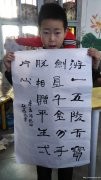 游人五陵去寶
劍直千金分手
脫相贈平生一
片心